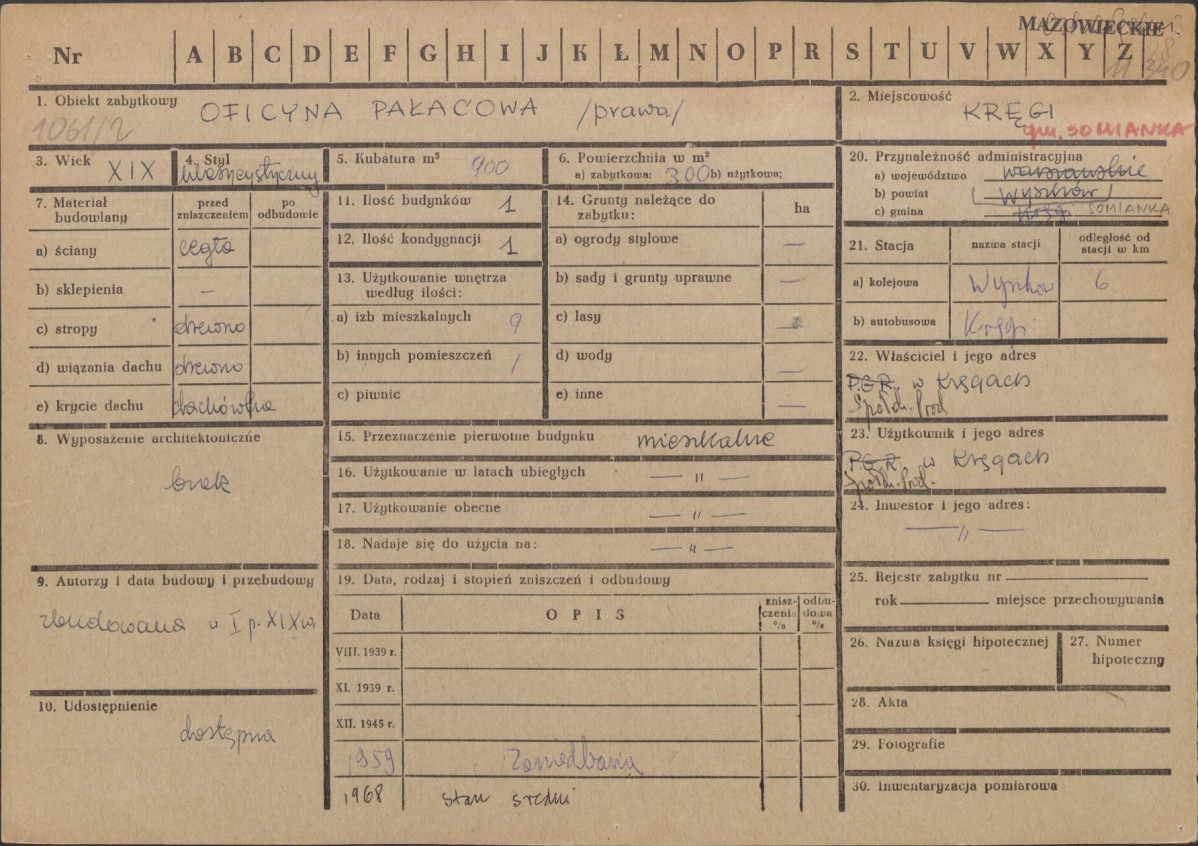 MAZOWIECKIE
Nr A B C D E F G H I J K Ł M N O P R S T U V W X Y Z
1. Obiekt zabytkowy OFICYNA PAŁACOWA /prawa/
1061/2
2. Miejscowość
KRĘGI
gm. SOMIANKA
3. Wiek XIX
4. Styl
klasycystyczny
5. Kubatura m³ 900
6. Powierzchnia w m²
a) zabytkowa: 300 b) użytkowa;
20. Przynależność administracyjna
a) województwo warszawskie
b) powiat Wyszków
c) gmina Kręgi SOMIANKA
7. Materiał budowlany
przed zniszczeniem
po odbudowie
a) ściany cegła
b) sklepienia —
c) stropy drewno
d) wiązania dachu drewno
e) krycie dachu dachówka
11. Ilość budynków 1
12. Ilość kondygnacji 1
13. Użytkowanie wnętrza
według ilości:
a) izb mieszkalnych 9
b) innych pomieszczeń 1
c) piwnic
14. Grunty należące do
zabytku: ha
a) ogrody stylowe —
b) sady i grunty uprawne —
c) lasy —
d) wody —
e) inne —
21. Stacja
nazwa stacji
odległość od
stacji w km
a) kolejowa Wyszków 6
b) autobusowa Kręgi
22. Właściciel i jego adres
P.G.R. w Kręgach
Spółdz. Prod
23. Użytkownik i jego adres
P.G.R. w Kręgach
Spółdz. Prod.
24. Inwestor i jego adres:
— " —
8. Wyposażenie architektoniczne
brak
15. Przeznaczenie pierwotne budynku mieszkalne
16. Użytkowanie w latach ubiegłych — " —
17. Użytkowanie obecne — " —
18. Nadaje się do użycia na: — " —
9. Autorzy i data budowy i przebudowy
zbudowana w I p. XIX w.
10. Udostępnienie
dostępna
19. Data, rodzaj i stopień zniszczeń i odbudowy
Data
OPIS
znisz-
czenia
%
odbu-
dowa
%
VIII. 1939 r.
XI. 1939 r.
XII. 1945 r.
1959 Zaniedbania
1968 stan średni
25. Rejestr zabytku nr
rok miejsce przechowywania
26. Nazwa księgi hipotecznej
27. Numer
hipoteczny
28. Akta
29. Fotografie
30. Inwentaryzacja pomiarowa